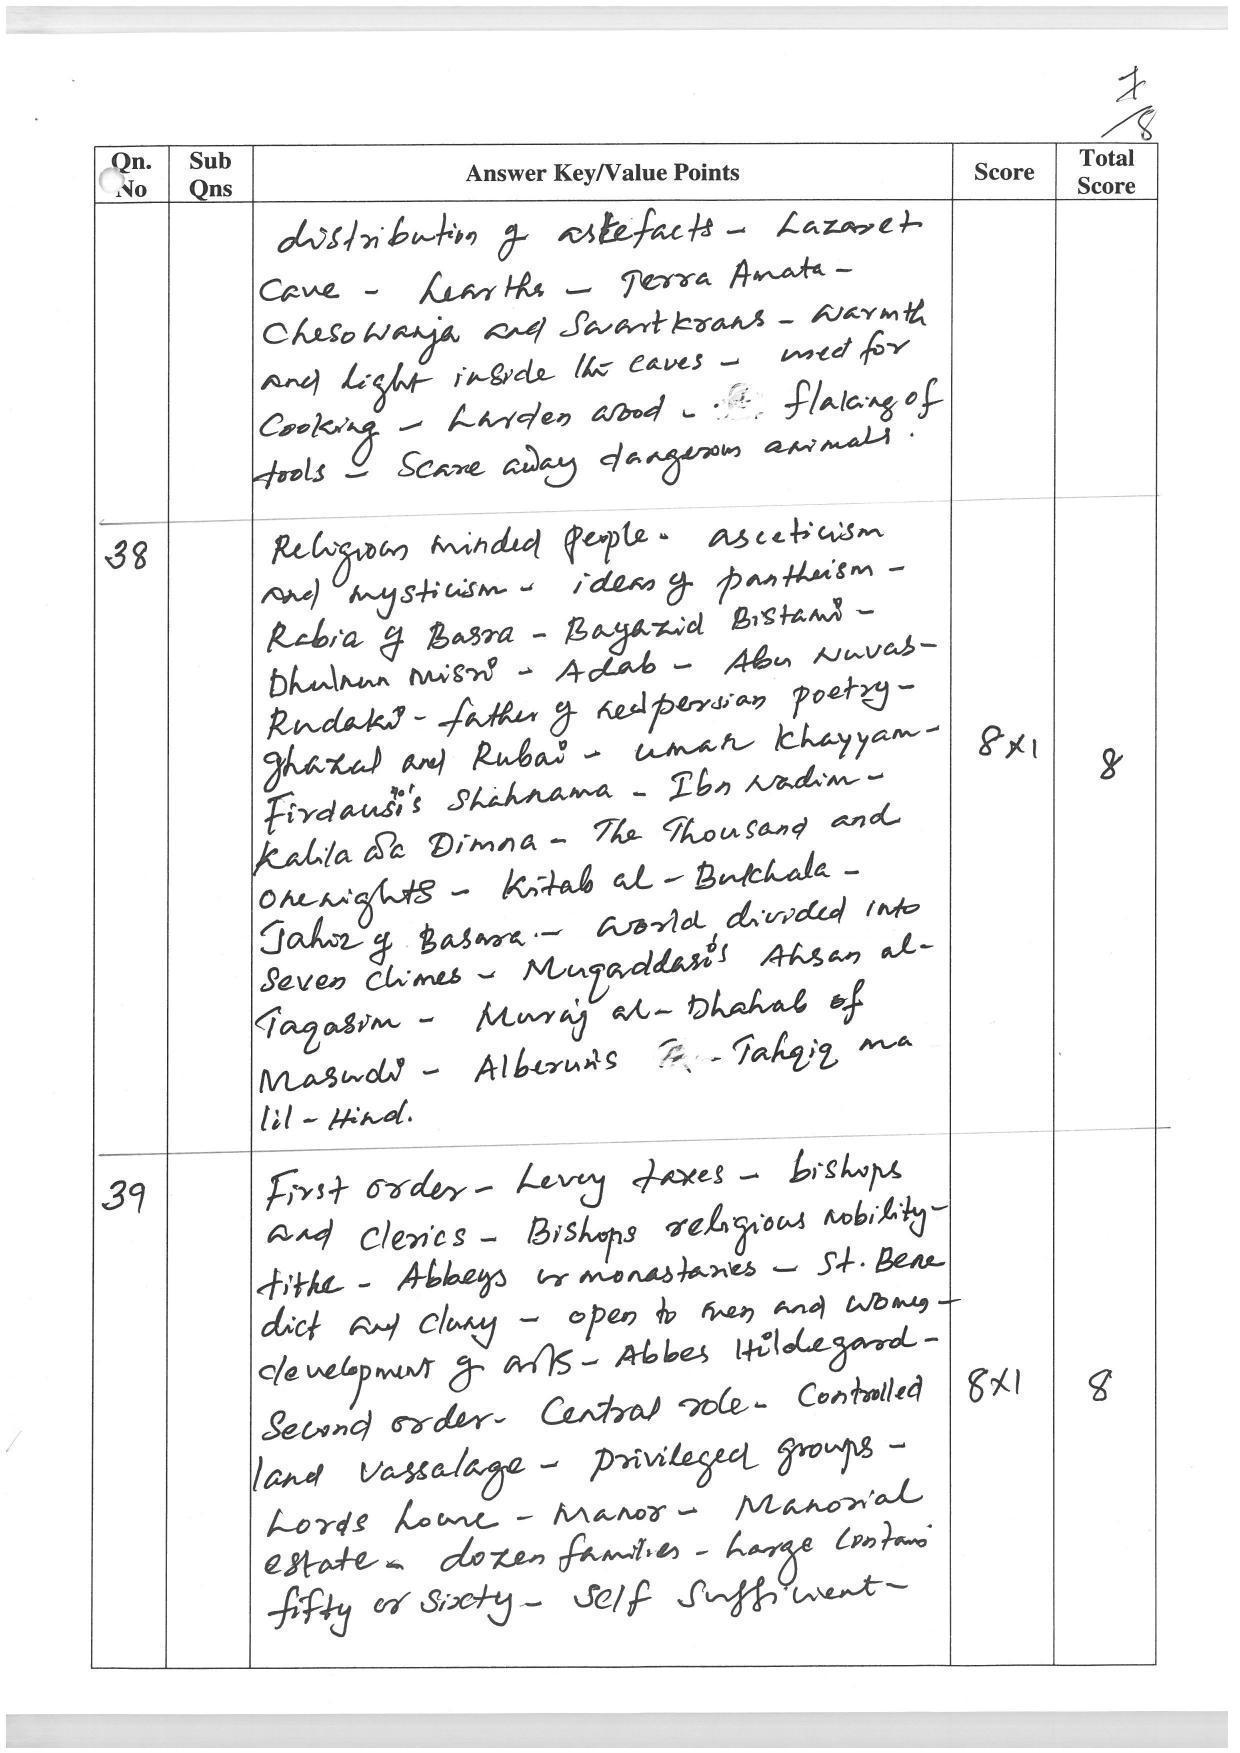 7/8
Qn. No
Sub Qns
Answer Key/Value Points
Score
Total Score
distribution of artefacts - Lazaret
Cave - hearths - Terra Amata -
Chesowanja and Swartkrans - warmth
and light inside the caves - used for
Cooking - harden wood - flaking of
tools - Scare away dangerous animals.
38
Religious minded people - asceticism
and mysticism - ideas of pantheism -
Rabia of Basra - Bayazid Bistami -
Dhulnun Misri - Adab - Abu Nuvas -
Rudaki - father of new persian poetry -
ghazal and Rubai - Umar Khayyam -
Firdausi's Shahnama - Ibn Nadim -
Kalila wa Dimna - The Thousand and
One nights - Kitab al - Bukhala -
Jahiz of Basara - World divided into
Seven Climes - Muqaddasi's Ahsan al-
Taqasim - Muruj al-Dhahab of
Masudi - Alberuni's - Tahqiq ma
lil - Hind.
8x1
8
39
First order - Levey taxes - bishops
and Clerics - Bishops religious nobility -
tithe - Abbeys or monastaries - St. Bene
dict and Cluny - open to men and women -
development of arts - Abbes Hildegard -
Second order - Central role - Controlled
land Vassalage - privileged groups -
Lords house - Manor - Manorial
estate - dozen families - Large Contains
fifty or Sixty - Self Sufficient -
8x1
8